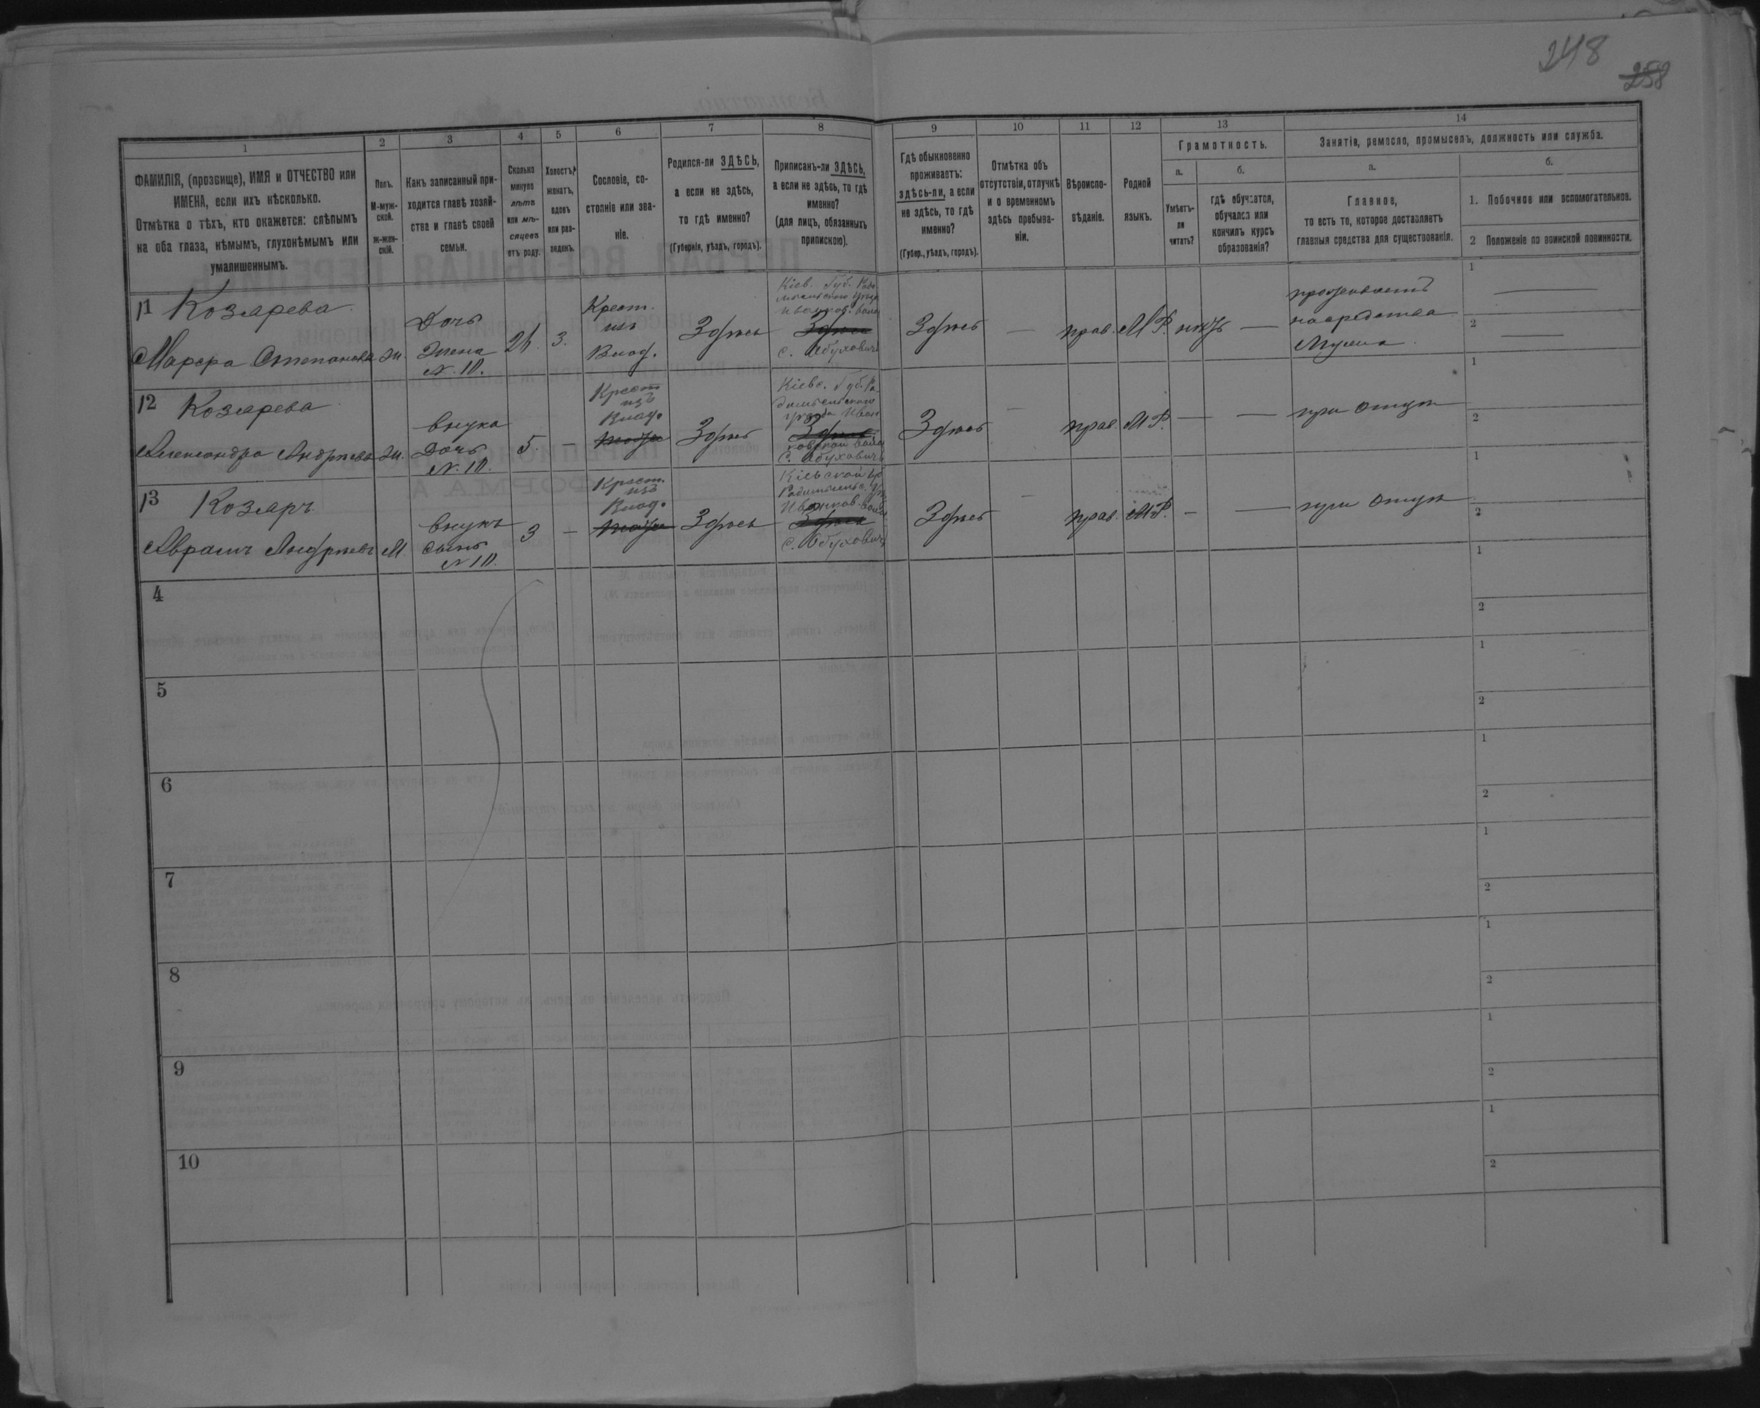 248
258
1
ФАМИЛІЯ, (прозвище), ИМЯ и ОТЧЕСТВО или
ИМЕНА, если ихъ нѣсколько.
Отмѣтка о тѣхъ, кто окажется: слѣпымъ
на оба глаза, нѣмымъ, глухонѣмымъ или
умалишеннымъ.
2
Полъ.
М-муж-
ской.
ж-жен-
скій.
3
Какъ записанный при-
ходится главѣ хозяй-
ства и главѣ своей
семьи.
4
Сколько
минуло
лѣтъ
или мѣ-
сяцевъ
отъ роду.
5
Холостъ,
женатъ,
вдовъ
или раз-
веденъ.
6
Сословіе, со-
стояніе или зва-
ніе.
7
Родился-ли ЗДѢСЬ,
а если не здѣсь,
то гдѣ именно?
(Губернія, уѣздъ, городъ).
8
Приписанъ-ли ЗДѢСЬ,
а если не здѣсь, то гдѣ
именно?
(для лицъ, обязанныхъ
припискою).
9
Гдѣ обыкновенно
проживаетъ:
здѣсь-ли, а если
не здѣсь, то гдѣ
именно?
(Губер., уѣздъ, городъ).
10
Отмѣтка объ
отсутствіи, отлучкѣ
и о временномъ
здѣсь пребыва-
ніи.
11
Вѣроиспо-
вѣданіе.
12
Родной
языкъ.
13
Грамотность.
а.
Умѣетъ-
ли
читать?
б.
гдѣ обучается,
обучался или
кончилъ курсъ
образованія?
14
Занятія, ремесло, промыселъ, должность или служба.
а.
Главное,
то есть то, которое доставляетъ
главныя средства для существованія.
б.
1. Побочное или вспомогательное.
2 Положеніе по воинской повинности.
11 Козярева
Марфа Степанова
ж.
Дочь
Жена
N. 10.
3.
Крест.
изъ
Влад.
Здѣсь
Кіев. Губ.
Здѣсь
с. Обуховичи
Здѣсь
—
прав.
М Р.
нѣтъ
—
на средства
Мужа
1
2
12 Козярева
Александра Андреева
ж.
внука
Дочь
N. 10.
5.
—
Крест
изъ
Влад.
Здѣсь
Кіевс. Губ. Ра
Здѣсь
С. Обуховичи
Здѣсь
—
прав.
М Р.
—
—
при отцѣ
1
2
13 Козяръ
Андреевъ
М
внукъ
сынъ
N 10.
3
—
Крест.
изъ
Влад.
Здѣсь
Кіевской Губ
Здѣсь
с. Обуховичи
Здѣсь
—
прав.
М Р.
—
—
при отцѣ
1
2
4
1
2
5
1
2
6
1
2
7
1
2
8
1
2
9
1
2
10
1
2